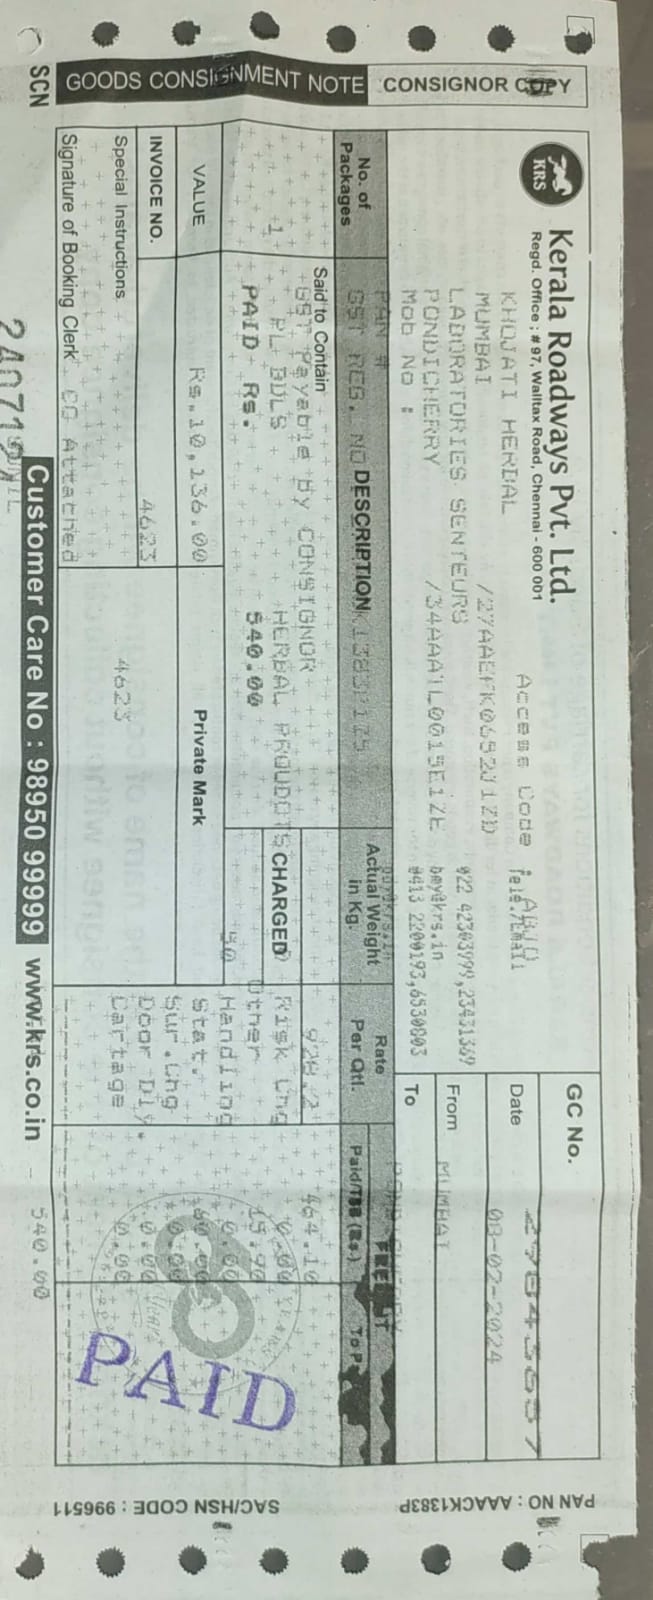 GOODS CONSIGNMENT NOTE CONSIGNOR COPY
KRS
Kerala Roadways Pvt. Ltd.
Regd. Office : # 97, Walltax Road, Chennai - 600 001
GC No.
Access Code :
Tele./Email
Date 08-02-2024
KHOJATI HERBAL
MUMBAI
022 42303999,23431369
From MUMBAI
LABORATORIES SENTEURS
bmy@krs.in
PONDICHERRY /34AAATL0015E1ZE
0413 2200193,6530803
To
Mob No :
PAN #
No. of Packages
GST REG. NO
DESCRIPTION
Actual Weight in Kg.
Rate Per Qtl.
FREIGHT
Paid/TBB (Rs.)
Said to Contain
GST Payable by CONSIGNOR
928.2 464.10
1 PL BDLS HERBAL PROUDOTS
CHARGED
Risk Chg 0.00
PAID Rs. 540.00
Other 15.90
50
Handling 0.00
VALUE Rs.10,136.00
Private Mark
Stat. 60.00
Sur.Chg 0.00
INVOICE NO. 4623
Door Dly. 0.00
Special Instructions
4623
Cartage 0.00
PAID
Signature of Booking Clerk
CC Attached
SCN
Customer Care No : 98950 99999 www.krs.co.in
540.00
PAN NO : AAACK1383P
SAC/HSN CODE : 996511